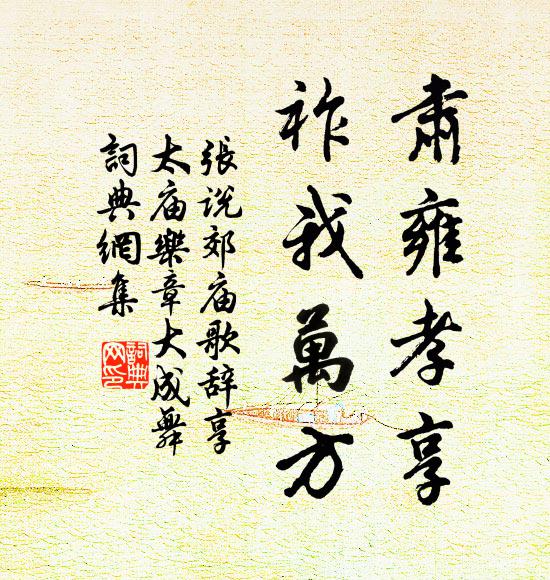 肅雍孝享
祚我萬方
張说郊庙歌辞享
太庙樂章大成舞
詞典網集
詞典
网印